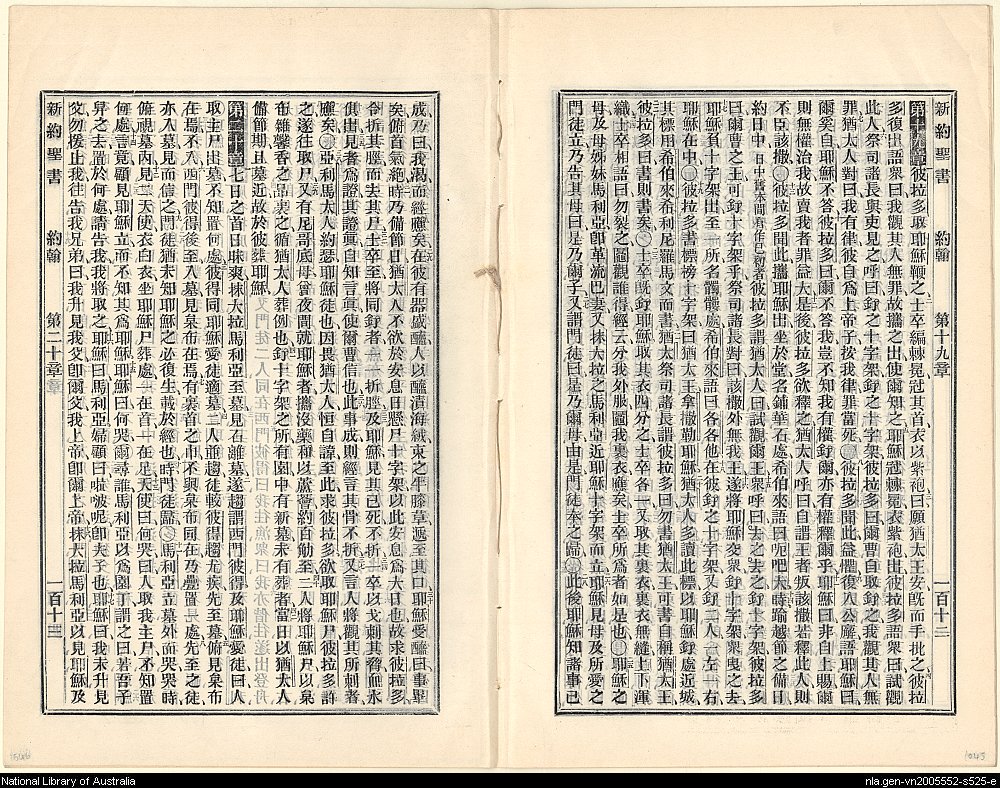 新約聖書 約翰 第十九章 一百十二
第十九章彼拉多取耶穌鞭之士卒編棘冕冠其首衣以紫袍曰願猶太王安旣而手批之彼拉
多復出語衆曰我觀其人無罪故攜之出使爾知之耶穌冠棘冕衣紫袍出彼拉多語衆曰試觀
此人祭司諸長與吏見之呼曰釘之十字架釘之十字架彼拉多曰爾曹自取釘之我觀其人無
罪猶太人對曰我有律彼自爲上帝子按我律罪當死彼拉多聞此益懼復入公廨語耶穌曰
爾奚自耶穌不答彼拉多曰爾不答我豈不知我有權釘爾亦有權釋爾乎耶穌曰非自上賜爾
則無權治我故賣我者罪益大是後彼拉多欲釋之猶太人呼曰自謂王者叛該撒若釋此人則
不臣該撒彼拉多聞此攜耶穌出坐於堂名鋪華石處希伯來語曰呃吧大時踰越節之備日
約日中彼拉多謂猶太人曰試觀爾王衆呼曰去之去之釘十字架彼拉多
曰爾曹之王可釘十字架乎祭司諸長對曰該撒外無我王遂將耶穌交衆釘十字架衆曳之去
耶穌負十字架出至一所名髑髏處希伯來語曰各各他在彼釘之十字架又釘二人左一右一
耶穌在中彼拉多書標榜十字架曰猶太王拿撒勒耶穌猶太人多讀此標以耶穌釘處近城
其標用希伯來希利尼羅馬文而書猶太祭司諸長謂彼拉多曰勿書猶太王可書自稱猶太王
彼拉多曰書則書矣士卒旣釘耶穌取其衣四分之士卒各一又取其裏衣裏衣無縫上下渾
織士卒相語曰勿裂之鬮觀誰得經云分我外服鬮我裏衣應矣士卒所爲者如是也耶穌之
母及母姊妹馬利亞卽革流巴妻又抹大拉之馬利亞近耶穌十字架而立耶穌見母及所愛之
門徒立乃告其母曰是乃爾子又謂門徒曰是乃爾母由是門徒奉之歸此後耶穌知諸事已
成乃曰我渴而經應矣在彼有器盛醯人以醯漬海絨束之牛膝草遞至其口耶穌受醯曰事畢
矣俯首氣絶時乃備節日猶太人不欲於安息日懸尸十字架以此安息爲大日也故求彼拉多
令折其脛而去其尸士卒至將同釘者一一折脛及耶穌見其已死不折一卒以戈刺其脅血水
俱出見者爲證其證眞自知言眞使爾曹信也此事成則經言其骨不折又言人將觀其所刺者
應矣亞利馬太人約瑟耶穌徒也因畏猶太人恒自諱至此求彼拉多欲取耶穌尸彼拉多許
之遂往取尸又有尼哥底母曾夜間就耶穌者攜沒藥和以蘆薈約百觔至二人將耶穌尸以枲
布雜馨香之品裹之循猶太人葬例也釘十字架之所有園中有新墓未有葬者當日以猶太人
備節期且墓近故於彼葬耶穌
第二十章七日之首日昧爽抹大拉馬利亞至墓見石離墓遂趨謂西門彼得及耶穌愛徒曰人
取主尸出墓不知置何處彼得同耶穌愛徒適墓二人並趨徒較彼得趨尤疾先至墓俯見枲布
在焉不入西門彼得後至入墓見枲布在焉有裹首之巾不與枲布同在乃疊置一處先至之徒
亦入墓見而信之門徒猶未知耶穌之必復生載於經也時門徒歸馬利亞立墓外而哭哭時
俯視墓內見二天使衣白衣坐耶穌尸葬處一在首一在足天使曰何哭曰人取我主尸不知置
何處言竟顧見耶穌立而不知其爲耶穌耶穌曰何哭爾尋誰馬利亞以爲園丁謂之曰若吾子
舁之去置於何處請告我我將取之耶穌曰馬利亞婦顧曰啦𠲿呢卽夫子也耶穌曰我未升見
父勿捫我往告我兄弟曰我升見我父卽爾父我上帝卽爾上帝抹大拉馬利亞以見耶穌及
新約聖書 約翰 第二十章 一百十三
1046
1045
National Library of Australia
nla.gen-vn2005552-s525-e